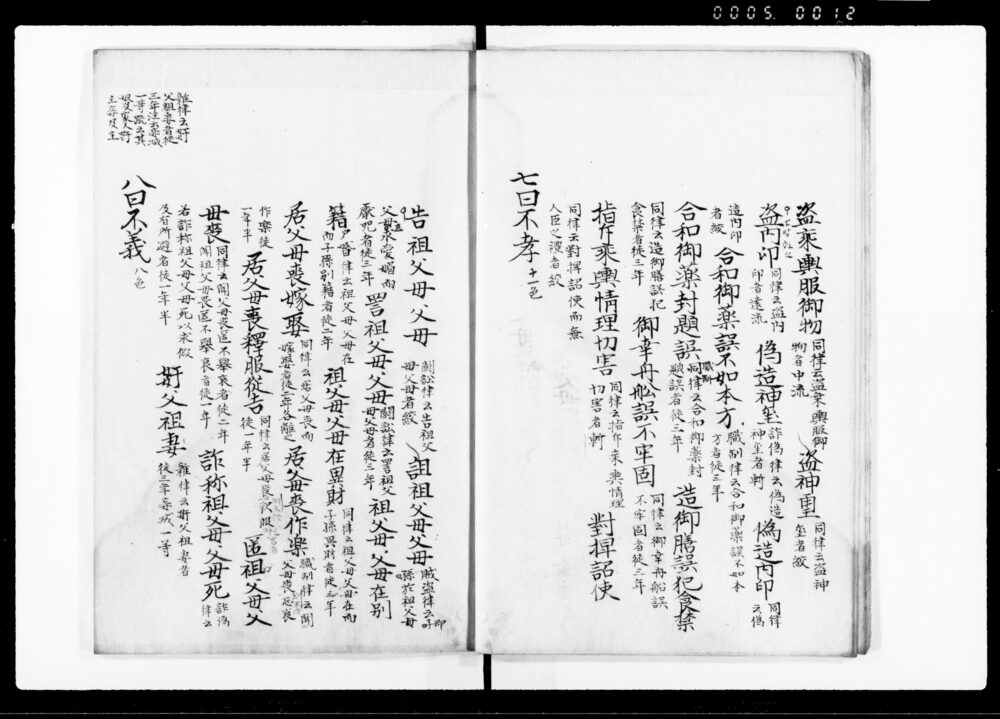 0005 0012
盗乗輿服御物 同律云盗乗輿服御物者中流 盗神璽 同律云盗神璽者絞
盗内印 同律云盗内印者遠流 偽造神璽 詐偽律云偽造神璽者斬 偽造内印 同律云偽
造内印者絞 合和御薬誤不如本方 職制律云合和御薬誤不如本方者徒三年
合和御薬封題誤 同律云合和御薬封題誤者徒三年 造御膳誤犯食禁
同律云造御膳誤犯食禁者徒三年 御幸舟舩誤不牢固 同律云御幸舟船誤不牢固者徒三年
指斥乗輿情理切害 同律云指斥乗輿情理切害者斬 對捍詔使
同律云對捍詔使而無人臣之礼者絞
七曰不孝 十一色
告祖父母父母 闘訟律云告祖父母父母者絞 詛祖父母父母 賊盗律云子孫於祖父母
父母求愛媚而厭咒者徒三年 詈祖父母父母 闘訟律云詈祖父母父母者徒三年 祖父母父母在別
籍 戸婚律云祖父母父母在而子孫別籍者徒二年 祖父母父母在異財 同律云祖父母父母在而子孫異財者徒三年
居父母喪嫁娶 同律云居父母喪而嫁娶者徒二年各離之 居父母喪作楽 職制律云聞父母喪忘哀
作楽徒一年半 居父母喪釋服従吉 同律云居父母喪釈服徒一年半 匿祖父母父
母喪 同律云聞父母喪匿不舉哀者徒二年聞祖父母喪匿不舉哀者徒一年 詐称祖父母父母死 詐偽律云
若詐称祖父母父母死以求假及有所避者徒一年半 奸父祖妻 雜律云奸父祖妻者徒三年妾减一等
八曰不義 八色
雜律云奸
父祖妻者徒
三年注云妾减
一等